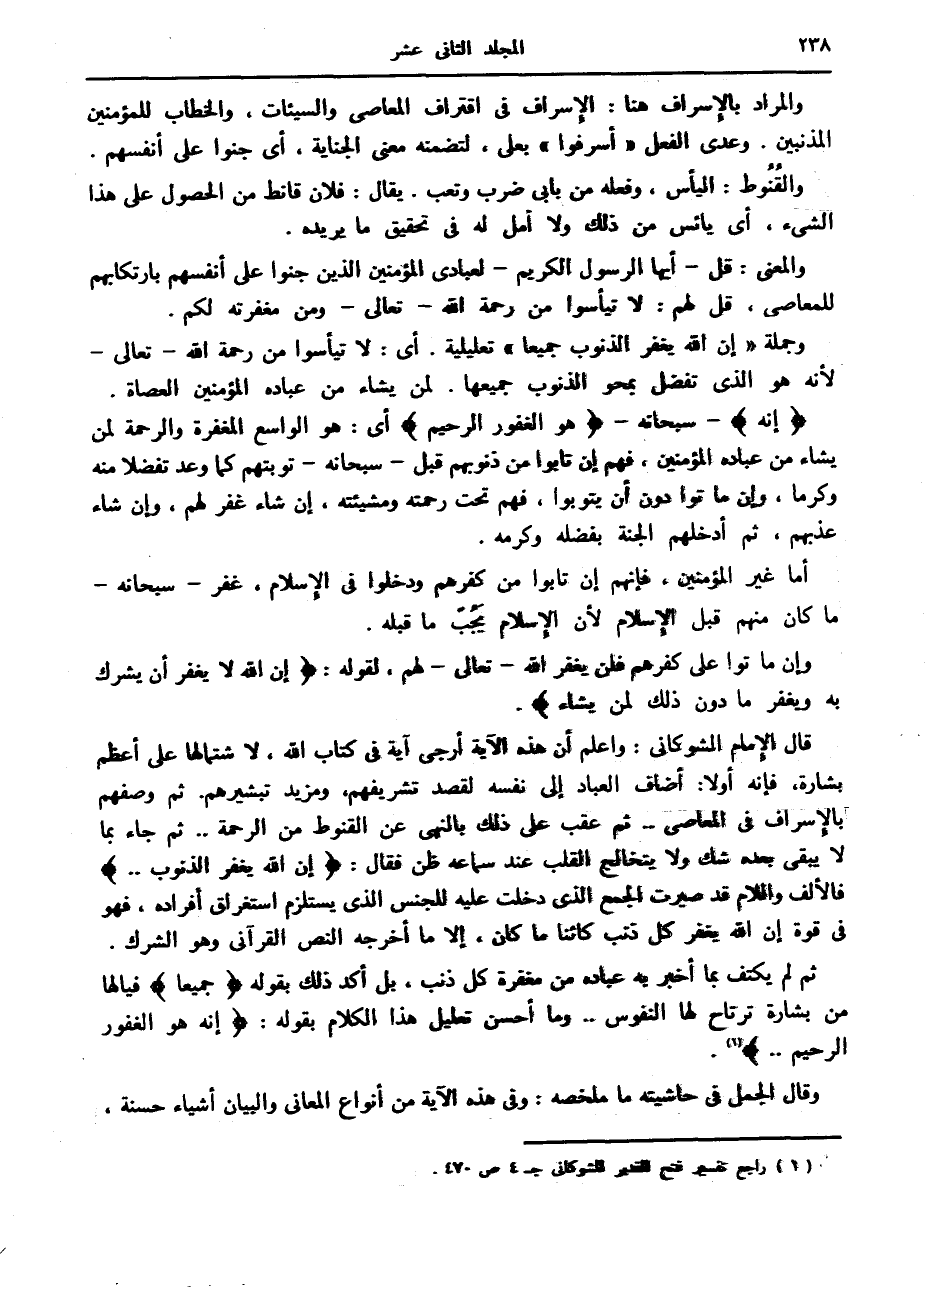 ٢٣٨
المجلد الثانى عشر
والمراد بالإسراف هنا : الإسراف فى اقتراف المعاصى والسيئات ، والخطاب للمؤمنين
المذنبين . وعدى الفعل « أسرفوا » بعلى ، لتضمنه معنى الجناية ، أى جنوا على أنفسهم .
والقُنُوط : اليأس ، وفعله من بابى ضرب وتعب . يقال : فلان قانط من الحصول على هذا
الشىء ، أى يائس من ذلك ولا أمل له فى تحقيق ما يريده .
والمعنى : قل – أيها الرسول الكريم – لعبادى المؤمنين الذين جنوا على أنفسهم بارتكابهم
للمعاصى ، قل لهم : لا تيأسوا من رحمة الله – تعالى – ومن مغفرته لكم .
وجملة « إن الله يغفر الذنوب جميعا » تعليلية . أى : لا تيأسوا من رحمة الله – تعالى –
لأنه هو الذى تفضل بمحو الذنوب جميعها . لمن يشاء من عباده المؤمنين العصاة .
﴿ إنه ﴾ – سبحانه – ﴿ هو الغفور الرحيم ﴾ أى : هو الواسع المغفرة والرحمة لمن
يشاء من عباده المؤمنين ، فهم إن تابوا من ذنوبهم قبل – سبحانه – توبتهم كما وعد تفضلا منه
وكرما ، وإن ما توا دون أن يتوبوا ، فهم تحت رحمته ومشيئته ، إن شاء غفر لهم ، وإن شاء
عذبهم ، ثم أدخلهم الجنة بفضله وكرمه .
أما غير المؤمنين ، فإنهم إن تابوا من كفرهم ودخلوا فى الإسلام ، غفر – سبحانه –
ما كان منهم قبل الإسلام لأن الإسلام يَجُبّ ما قبله .
وإن ما توا على كفرهم فلن يغفر الله – تعالى – لهم ، لقوله : ﴿ إن الله لا يغفر أن يشرك
به ويغفر ما دون ذلك لمن يشاء ﴾ .
قال الإمام الشوكانى : واعلم أن هذه الآية أرجى آية فى كتاب الله ، لا شتمالها على أعظم
بشارة، فإنه أولا: أضاف العباد إلى نفسه لقصد تشريفهم، ومزيد تبشيرهم. ثم وصفهم
بالإسراف فى المعاصى .. ثم عقب على ذلك بالنهى عن القنوط من الرحمة .. ثم جاء بما
لا يبقى بعده شك ولا يتخالج القلب عند سماعه ظن فقال : ﴿ إن الله يغفر الذنوب .. ﴾
فالألف واللام قد صيرت الجمع الذى دخلت عليه للجنس الذى يستلزم استغراق أفراده ، فهو
فى قوة إن الله يغفر كل ذنب كائنا ما كان ، إلا ما أخرجه النص القرآنى وهو الشرك .
ثم لم يكتف بما أخبر به عباده من مغفرة كل ذنب ، بل أكد ذلك بقوله ﴿ جميعا ﴾ فيالها
من بشارة ترتاح لها النفوس .. وما أحسن تعليل هذا الكلام بقوله : ﴿ إنه هو الغفور
الرحيم .. ﴾(١) .
وقال الجمل فى حاشيته ما ملخصه : وفى هذه الآية من أنواع المعانى والبيان أشياء حسنة ،
(١) راجع تفسير فتح القدير للشوكانى جـ ٤ ص ٤٧٠ .